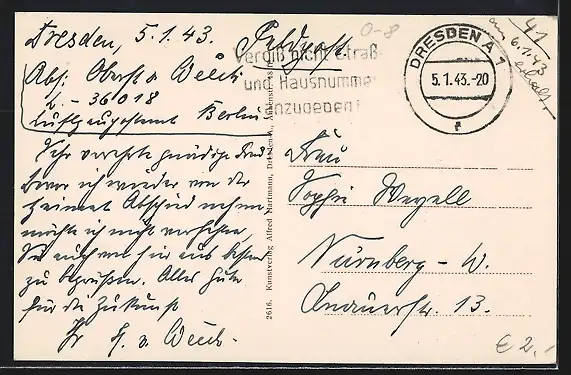 Dresden, 5.1.43. Feldpost.
Abs: Oberst v. Weech
L. - 36018
Luftgaupostamt Berlin
Sehr verehrte gnädige Frau
bevor ich wieder von der
Heimat Abschied nehme,
möchte ich nicht verfehlen,
Sie auch von hier aus bestens
zu begrüßen. Alles Gute
für die Zukunft
Ihr v. Weech.
Vergiß nicht Straß-
und Hausnummer
anzugeben!
DRESDEN A 1
5.1.43.-20
f
0-8
41
am 6.1.43
erhalt.
Frau
Sophie Weyell
Nürnberg - W.
13.
2616. Kunstverlag Alfred Hartmann, Dresden-A.
€ 2,-